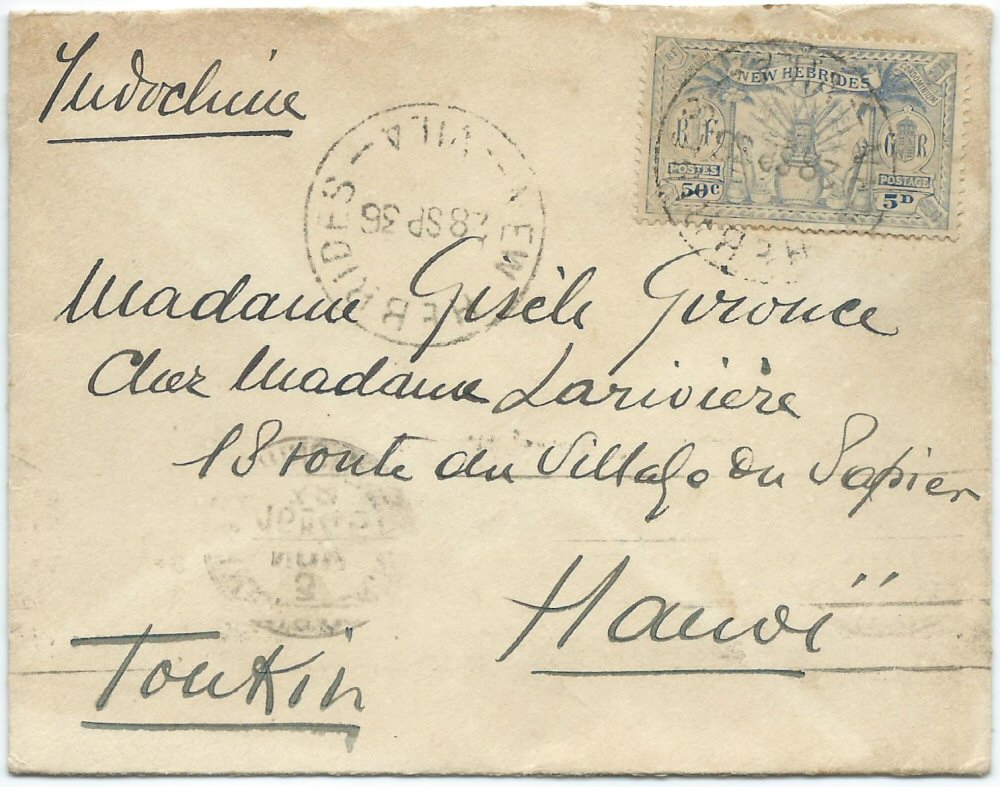 Indochine
NEW HEBRIDES
RF
GR
POSTES
50c
POSTAGE
5D
VILA — NEW HEBRIDES
28 SP 36
Madame Gisèle Gironce
Chez Madame Larivière
18 route du Village du Papier
Hanoï
Tonkin